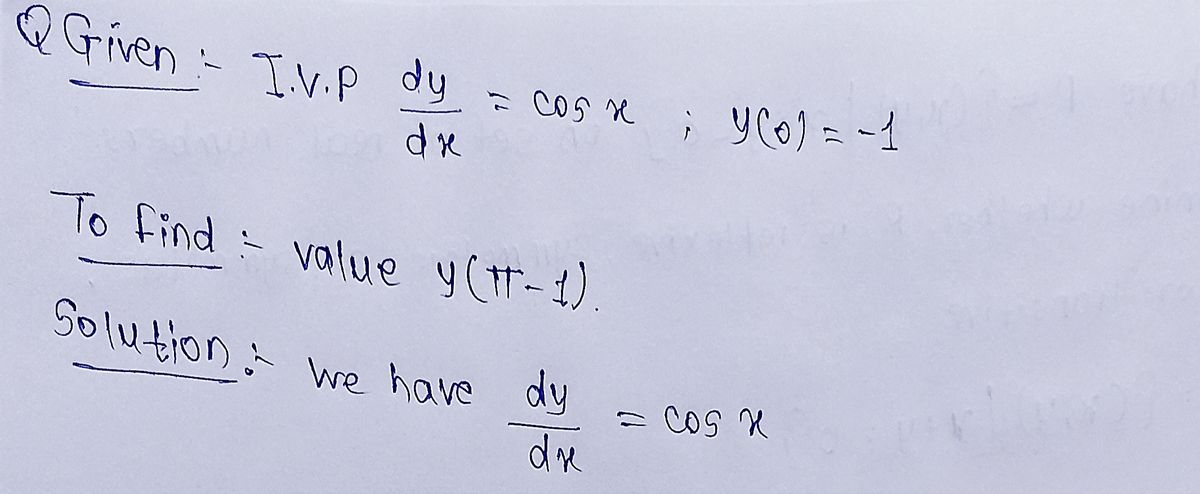 Q Given :- I.V.P dy/dx = cos x ; y(0) = -1
To find :- value y(π-1).
Solution :- We have dy/dx = cos x